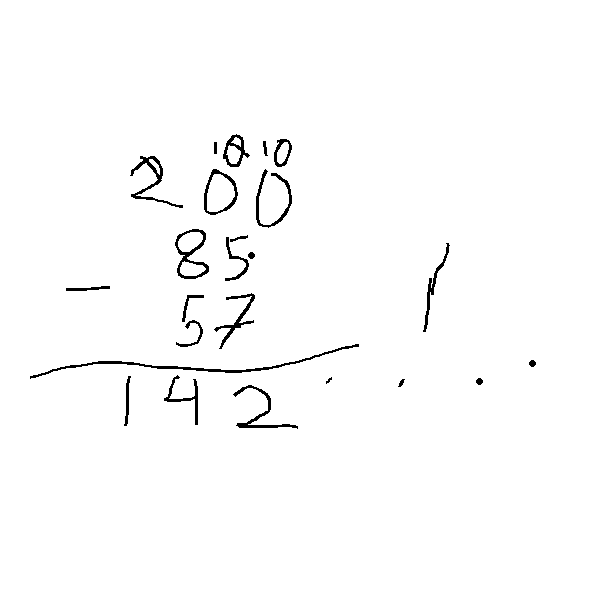 10 10
200
85.
- 57
142 . . . .